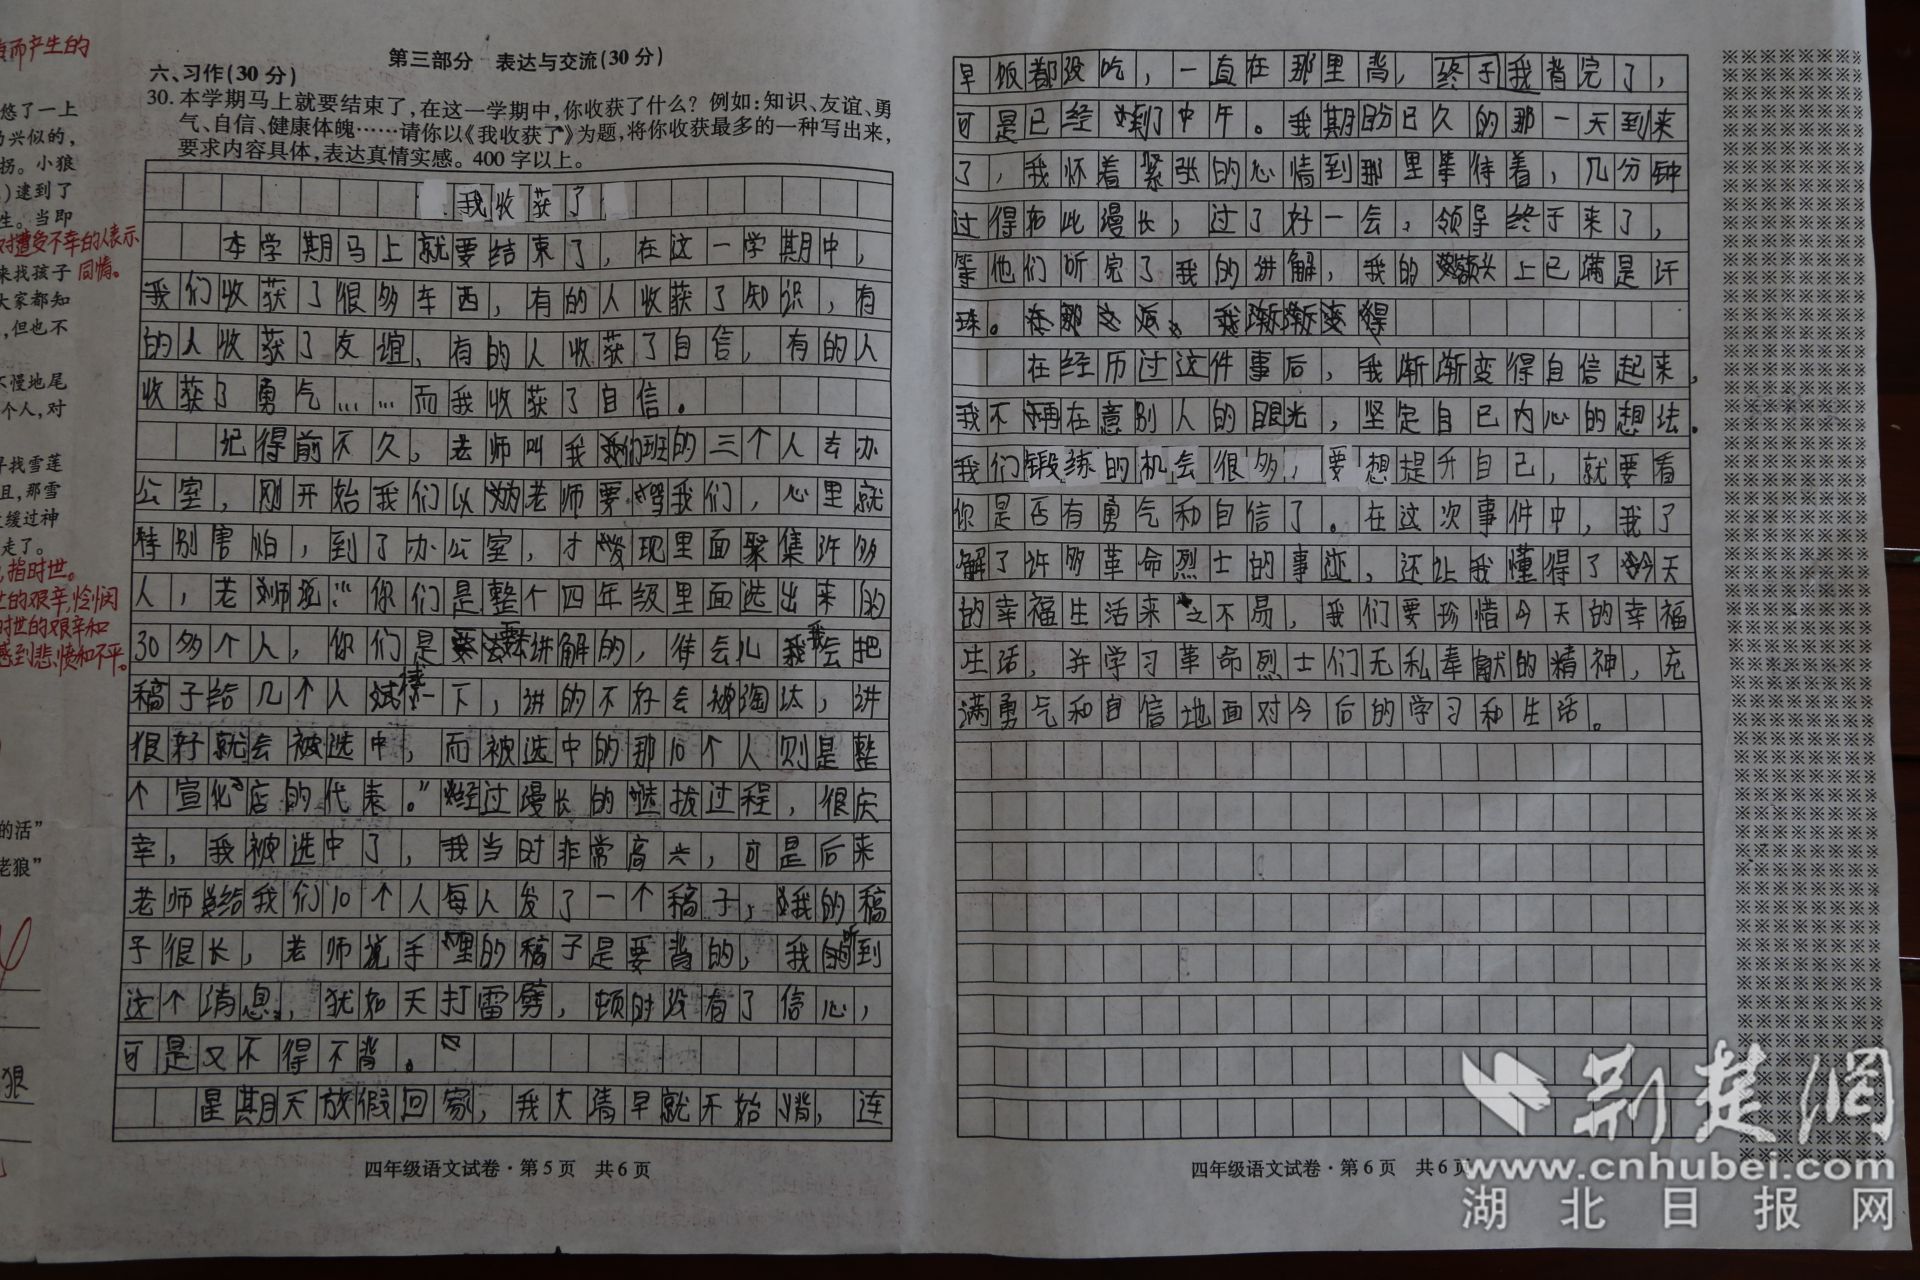 真而产生的
悠了一上
的兴似的，
拐。小狼
)逮到了
生。当即
对遭受不幸的人表示
来找孩子 同情。
大家都知
，但也不
不慢地尾
个人，对
寻找雪莲
且，那雪
缓过神
走了。
指时世。
世的艰辛，怜悯
时世的艰辛和
感到悲愤和不平。
的活”
老狼”
狼
第三部分 表达与交流(30分)
六、习作(30分)
30. 本学期马上就要结束了，在这一学期中，你收获了什么？例如：知识、友谊、勇
气、自信、健康体魄……请你以《我收获了》为题，将你收获最多的一种写出来，
要求内容具体，表达真情实感。400字以上。
我收获了
本学期马上就要结束了，在这一学期中，
我们收获了很多车西，有的人收获了知识，有
的人收获了友谊，有的人收获了自信，有的人
收获了勇气……而我收获了自信。
记得前不久，老师叫我们班的三个人去办
公室，刚开始我们以为老师要骂我们，心里就
特别害怕，到了办公室，才发现里面聚集许多
人，老师说：“你们是整个四年级里面选出来的
30多个人，你们是要去讲解的，待会儿我会把
稿子给几个人试读一下，讲的不好会被淘汰，讲
很好就会被选中，而被选中的那10个人则是整
个宣化店的代表。”经过漫长的选拔过程，很庆
幸，我被选中了，我当时非常高兴，可是后来
老师给我们10个人每人发了一个稿子，我的稿
子很长，老师说手里的稿子是要背的，我听到
这个消息，犹如天打雷劈，顿时没有了信心，
可是又不得不背。
星期天放假回家，我大清早就开始背，连
四年级语文试卷·第5页 共6页
早饭都没吃，一直在那里背，终于我背完了，
可是已经到了中午。我期盼已久的那一天到来
了，我怀着紧张的心情到那里等待着，几分钟
过得如此漫长，过了好一会，领导终于来了，
等他们听完了我的讲解，我的额头上已满是汗
珠。在那之后，我渐渐变得
在经历过这件事后，我渐渐变得自信起来，
我不再在意别人的眼光，坚定自己内心的想法。
我们锻练的机会很多，要想提升自己，就要看
你是否有勇气和自信了。在这次事件中，我了
解了许多革命烈士的事迹，还让我懂得了今天
的幸福生活来之不易，我们要珍惜今天的幸福
生活，并学习革命烈士们无私奉献的精神，充
满勇气和自信地面对今后的学习和生活。
四年级语文试卷·第6页 共6页
荆楚网
www.cnhubei.com
湖北日报网